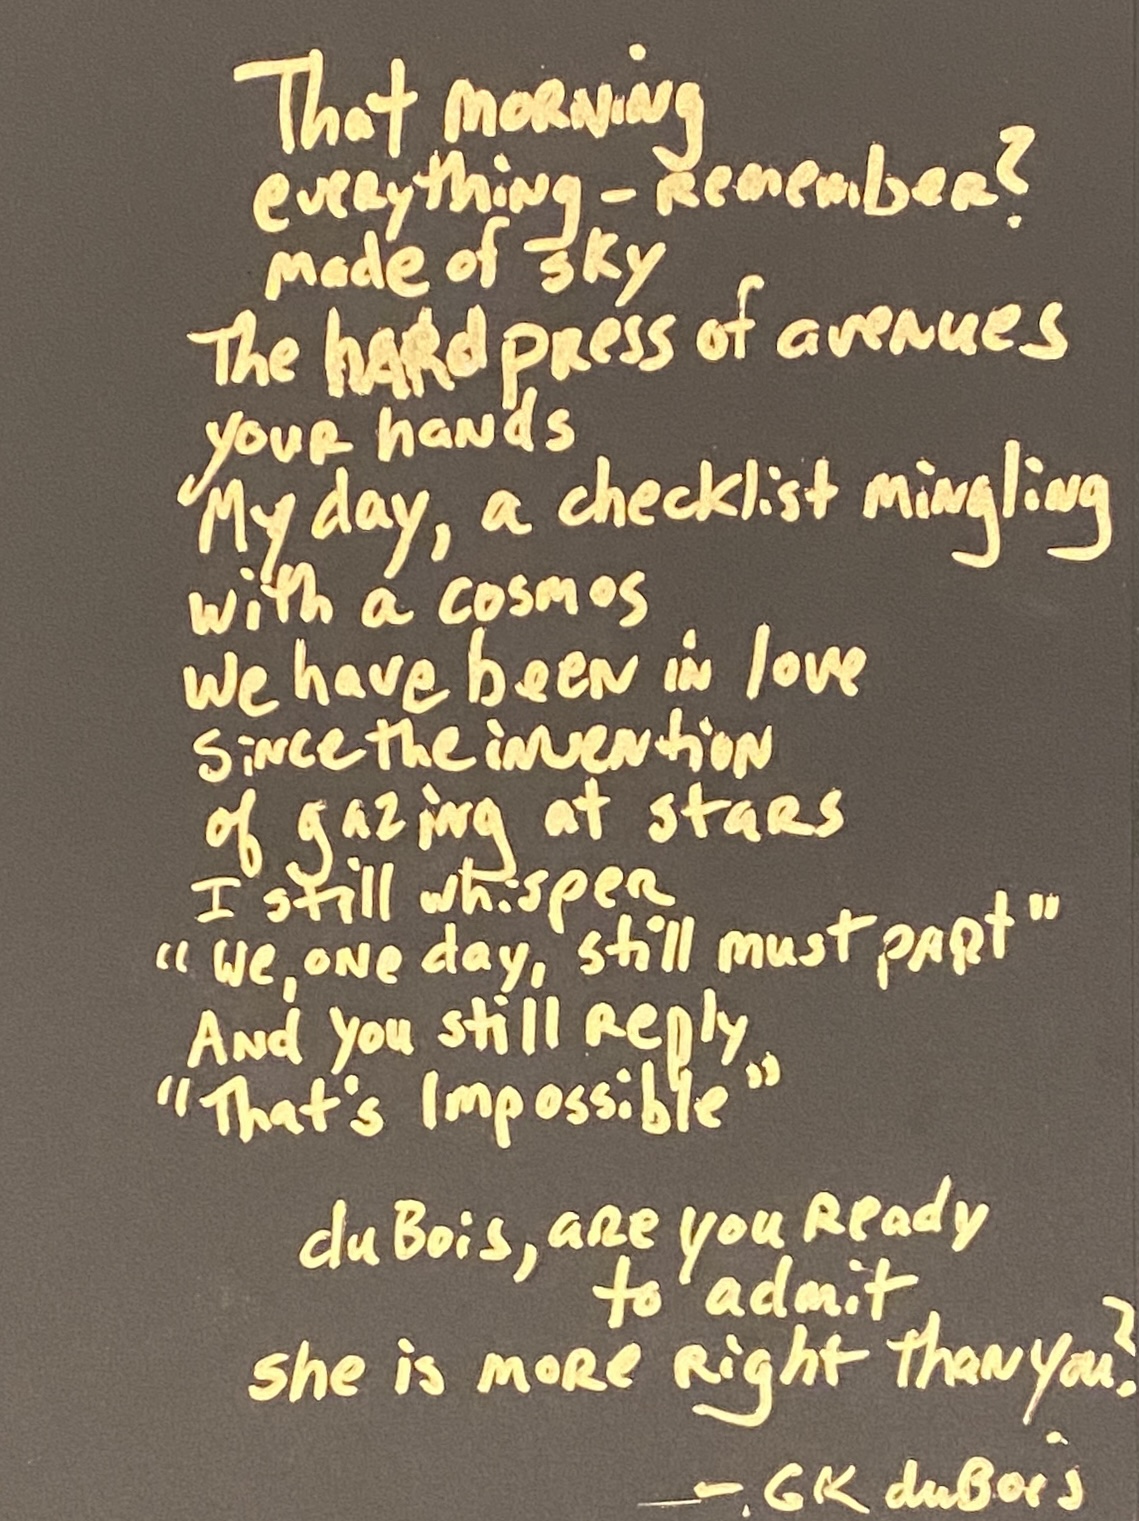 That morning
everything - remember?
made of sky
The hard press of avenues
your hands
My day, a checklist mingling
with a cosmos
We have been in love
since the invention
of gazing at stars
I still whisper
"We, one day, still must part"
And you still reply
"That's Impossible"
duBois, are you ready
to admit
she is more right than you?
- GK duBois